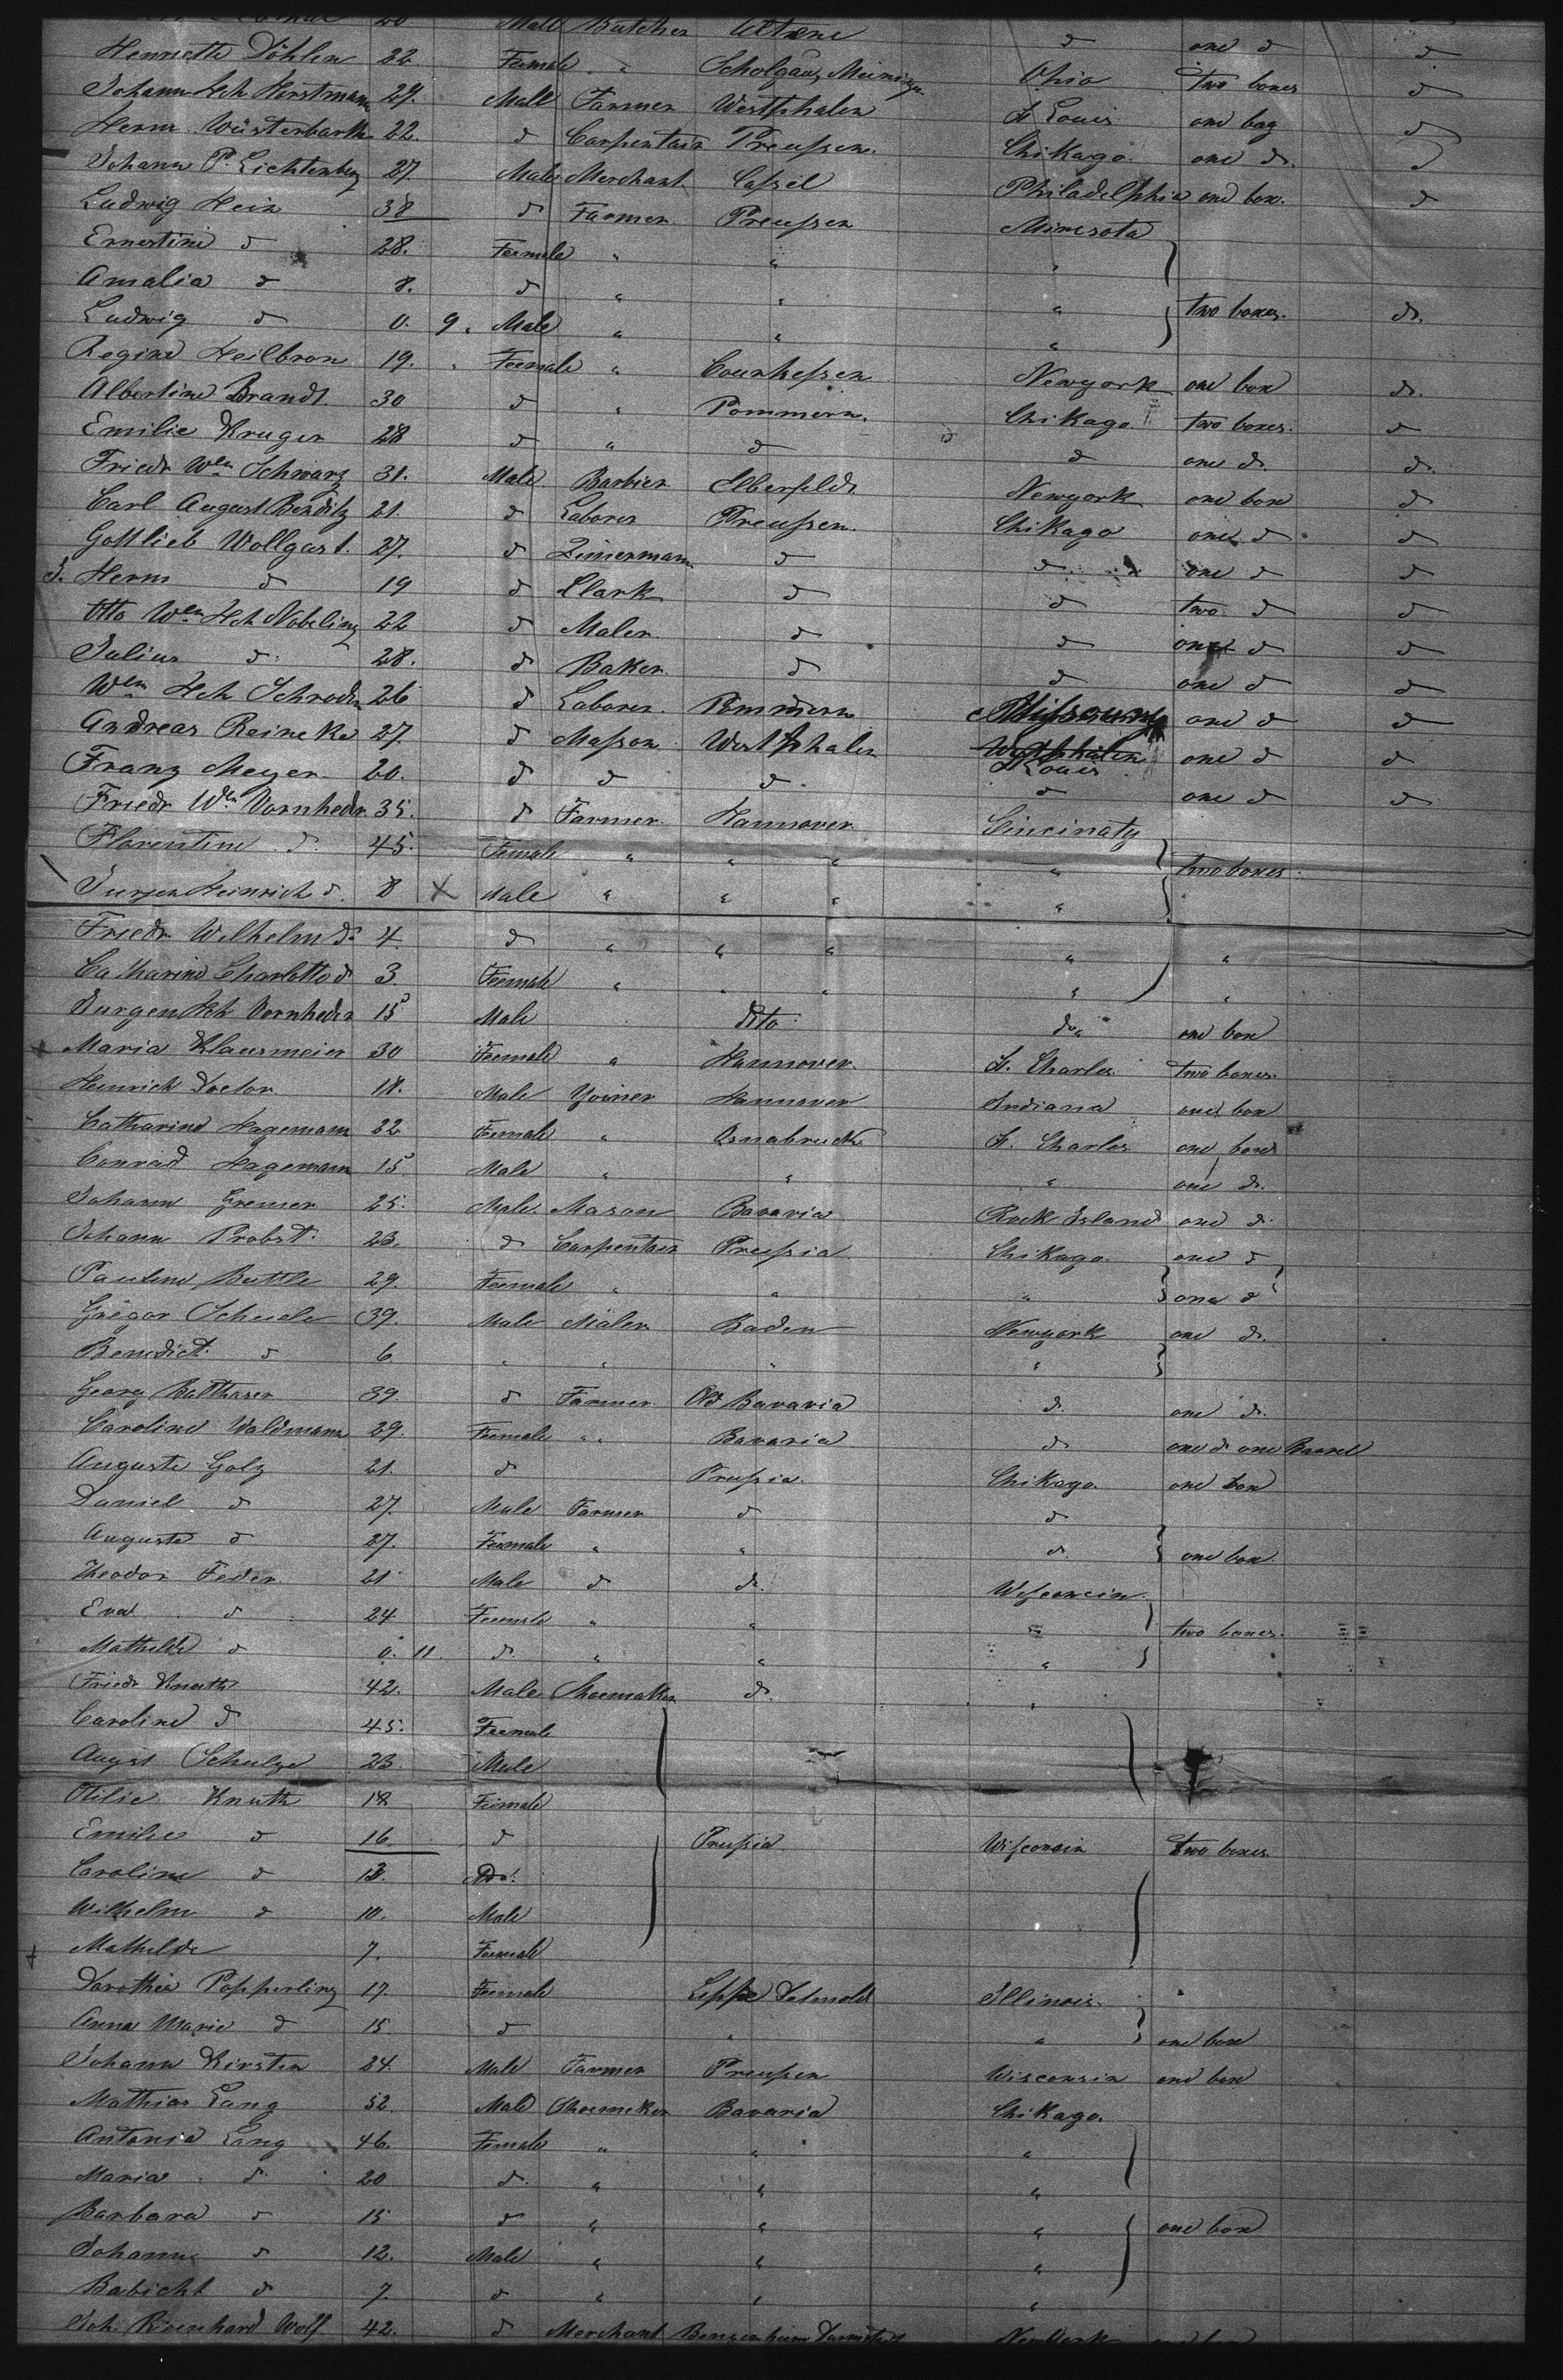 20 Male Butcher Altona d one d d
Henriette Döhlen 22 Female " Meiningen Ohio two boxes d
Johann Hch Horstmann 29. Male Farmer Westphalen St Louis one bag d
Herm Wüsterbarth 22. d Carpentair Preußen. Chikago one d.
Johann P. Lichtenberg 27 Male Merchant Caßel Philadelphia one box. d
Ludwig Hein 38 d Farmer Preußen Minesota
Ernestine d 28. Female " " "
Amalia d 8. d " " " two boxes. do.
Ludwig d 0. 9. Male " " "
Regine Heilbron 19. " Female " Courheßen Newyork one box do.
Albertine Brandt 30 d " Pommern. Chikago two boxes. d
Emilie Kruger 28 d " d d one do. do.
Friedr Wlm Schwarz 31. Male Barbier Elberfeld Newyork one box d
Carl August Benditz 21. d Laborer Preußen. Chikago one d d
Gottlieb Wollgast. 27. d Zimermann d d one d d
Herm d 19 d Clark d d two d d
Otto Wlm Hch Nobeling 22 d Maler d d one d d
Julius d 28. d Baker d d one d d
Wlm Hch Schroder 26 d Laborer Pommern Mißoury one d d
Andreas Reineke 27. d Maßon Westphalen Westphalen St Louis one d d
Franz Meyer 20. d d d d one d d
Friedr Wlm Vornheder 35. d Farmer Hannover Cincinaty
Florentine d 45. Female " " " " two boxes
Jurgen Heinrich d. 8 X Male " " " "
Friedr Wilhelm do 4. d " " " " "
Catharine Charlotte d 3. Female " " " " "
Jurgen Hch Vornheder 15 Male dito do " one box
Maria Klausmeier 30 Female " Hannover St. Charles two boxes
Heinrich Doctor 18. Male Yoiner Hannover Indiana one box
Catharine Hagemann 22 Female " Osnabruck St. Charles one box
Conrad Hagemann 15. Male " " " one do.
Johann Gremer 25. Male. Mason Bavaria Rock Island one d.
Johann Probst 23. d Carpentair Prußia Chikago. one d
Pauline Buttle 29. Female " " " one d
Gregor Scheele 39. Male Maler Baden Newyork one do.
Benedict d 6 " " " "
Georg Balthaser 39. d Farmer Old Bavaria d. one do.
Caroline Waldmann 29. Female " " Bavaria do one d one Barrel
Auguste Golz 21. d Prußia. Chikago. one box
Daniel d 27. Male Farmer d d
Auguste d 27. Female " " d. one box.
Theodor Feder 21 Male d do. Wisconcin.
Eva d 24 Female " " " two boxes.
Mathilde d 0. 11. d. " " "
Friedr Knuth 42. Male Shoemaker do. "
Caroline d 45. Female
August Schulze 23 Male
Otilie Knuth 18 Female
Emilie d 16. d Prußia Wisconsin two boxes.
Caroline d 13. Do.
Wilhelm d 10. Male
Mathilde 7. Female
Dorothea Popperling 17. Female Lippe Detmold Illinois.
Anna Marie d 15. d " " one box
Johann Kirsten 24. Male Farmer Preußen Wisconsin one box
Mathias Lang 52. Male Shoemeker Bavaria Chikago.
Antonia Lang 46. Female " " "
Maria d 20 d. " " "
Barbara d 15 d " " " one box
Johann d 12. Male " " "
Babicht d 7. d " " "
Joh Reinhard Wolf 42. d Merchant New York one box